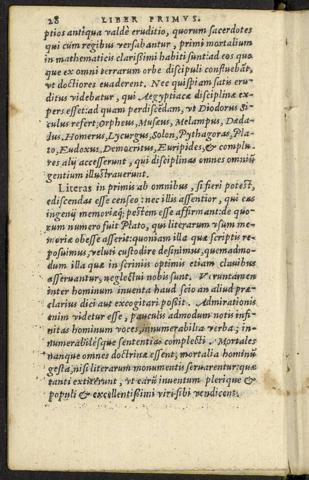 28 LIBER PRIMVS.
ptios antiqua valdè eruditio, quorum sacerdotes
qui cùm regibus versabantur, primi mortalium
in mathematicis clarißimi habiti sunt: ad eos quo-
que ex omni terrarum orbe discipuli confluebāt,
vt doctiores euaderent. Nec quispiam satis eru-
ditus videbatur, qui Aegyptiacæ disciplinæ ex-
pers esset: ad quam perdiscēdam, vt Diodorus Si-
culus refert, Orpheus, Musæus, Melampus, Dæda-
lus, Homerus, Lycurgus, Solon, Pythagoras, Pla-
to, Eudoxus, Democritus, Euripides, & complu-
res alij accesserunt, qui disciplinas omnes omniū
gentium illustrauerunt.
Literas in primis ab omnibus, si fieri potest,
ediscendas esse censeo: nec illis assentior, qui eas
ingenij memoriæq; pestem esse affirmant: de quo-
rum numero fuit Plato, qui literarum vsum me-
moriæ obesse asserit: quoniam illa quæ scriptis re-
posuimus, veluti custodire desinimus, quemadmo-
dum illa quæ in scriniis optimis etiam clauibus
asseruantur, neglectui nobis sunt. Veruntamen
inter hominum inuenta haud scio an aliud præ-
clarius dici aut excogitari poßit. Admirationis
enim videtur esse, pauculis admodum notis infi-
nitas hominum voces, innumerabilia verba, in-
numerabilésque sententias complecti. Mortales
nanque omnes doctrinæ essent, mortalia hominū
gesta, nisi literarum monumentis seruarentur: quæ
tanti extiterunt, vt earū inuentum plerique &
populi & excellentißimi viri sibi vendicent.